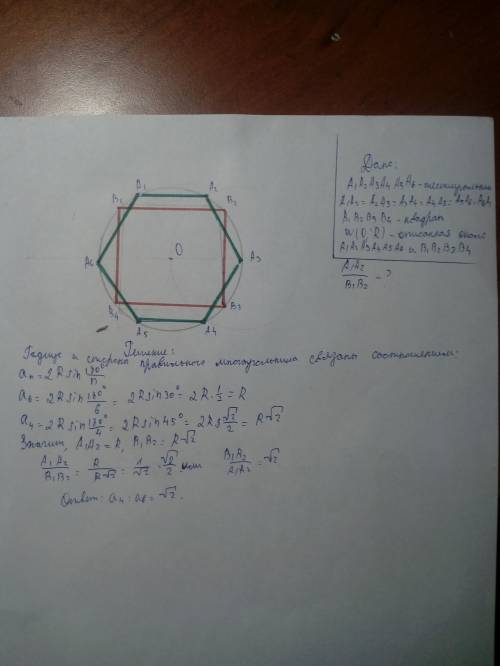 B₁ A₂
B₁ B₂
A₆ O A₃
B₄ B₃
A₅ A₄
Дано:
A₁A₂A₃A₄A₅A₆ - шестиугольник
A₁A₂ = A₂A₃ = A₃A₄ = A₄A₅ = A₅A₆
B₁B₂B₃B₄ - квадрат
w(O; R) - описанная около
A₁A₂A₃A₄A₅A₆ и B₁B₂B₃B₄
A₁A₂/B₁B₂ - ?
Решение:
Радиус и сторона правильного многоугольника связаны соотношением:
aₙ = 2R sin 180°/n
a₆ = 2R sin 180°/6 = 2R sin 30° = 2R · 1/2 = R
a₄ = 2R sin 180°/4 = 2R sin 45° = 2R √2/2 = R√2
Значит, A₁A₂ = R, B₁B₂ = R√2
A₁A₂/B₁B₂ = R/R√2 = 1/√2 = √2/2 или B₁B₂/A₁A₂ = √2
Ответ: a₄ : a₆ = √2.